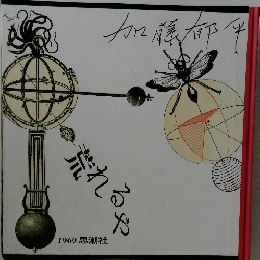 加藤郁乎
荒れるや
1969 思潮社